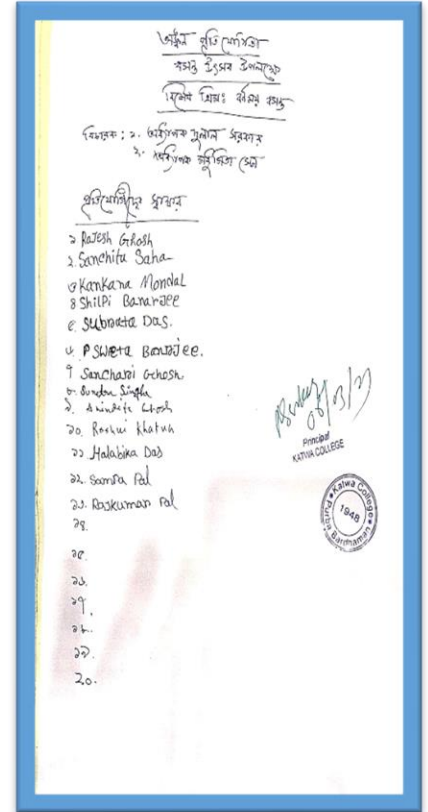 অঙ্কন প্রতিযোগিতা
বসন্ত উৎসব উপলক্ষে
বিশেষ থিমঃ বর্ণময় বসন্ত
বিচারক : ১. অধ্যাপক দুলাল সরকার
২. অধ্যাপক সেন
প্রতিযোগীদের স্বাক্ষর
১ Rajesh Ghosh
২. Sanchita Saha
৩ Kankana Mondal
৪ Shilpi Banarjee
৫. Subrata Das.
৬. P Sweta Banarjee.
৭ Sanchari Ghosh
৮. Sundar Singha
৯. Anindita Ghosh
১০. Khatun
১১. Malabika Das
১২. Sampa Pal
১৩. Rajkumar Pal
১৪.
১৫.
১৬.
১৭.
১৮.
১৯.
২০.
Principal
KATWA COLLEGE
Katwa College
1948
Purba Bardhaman